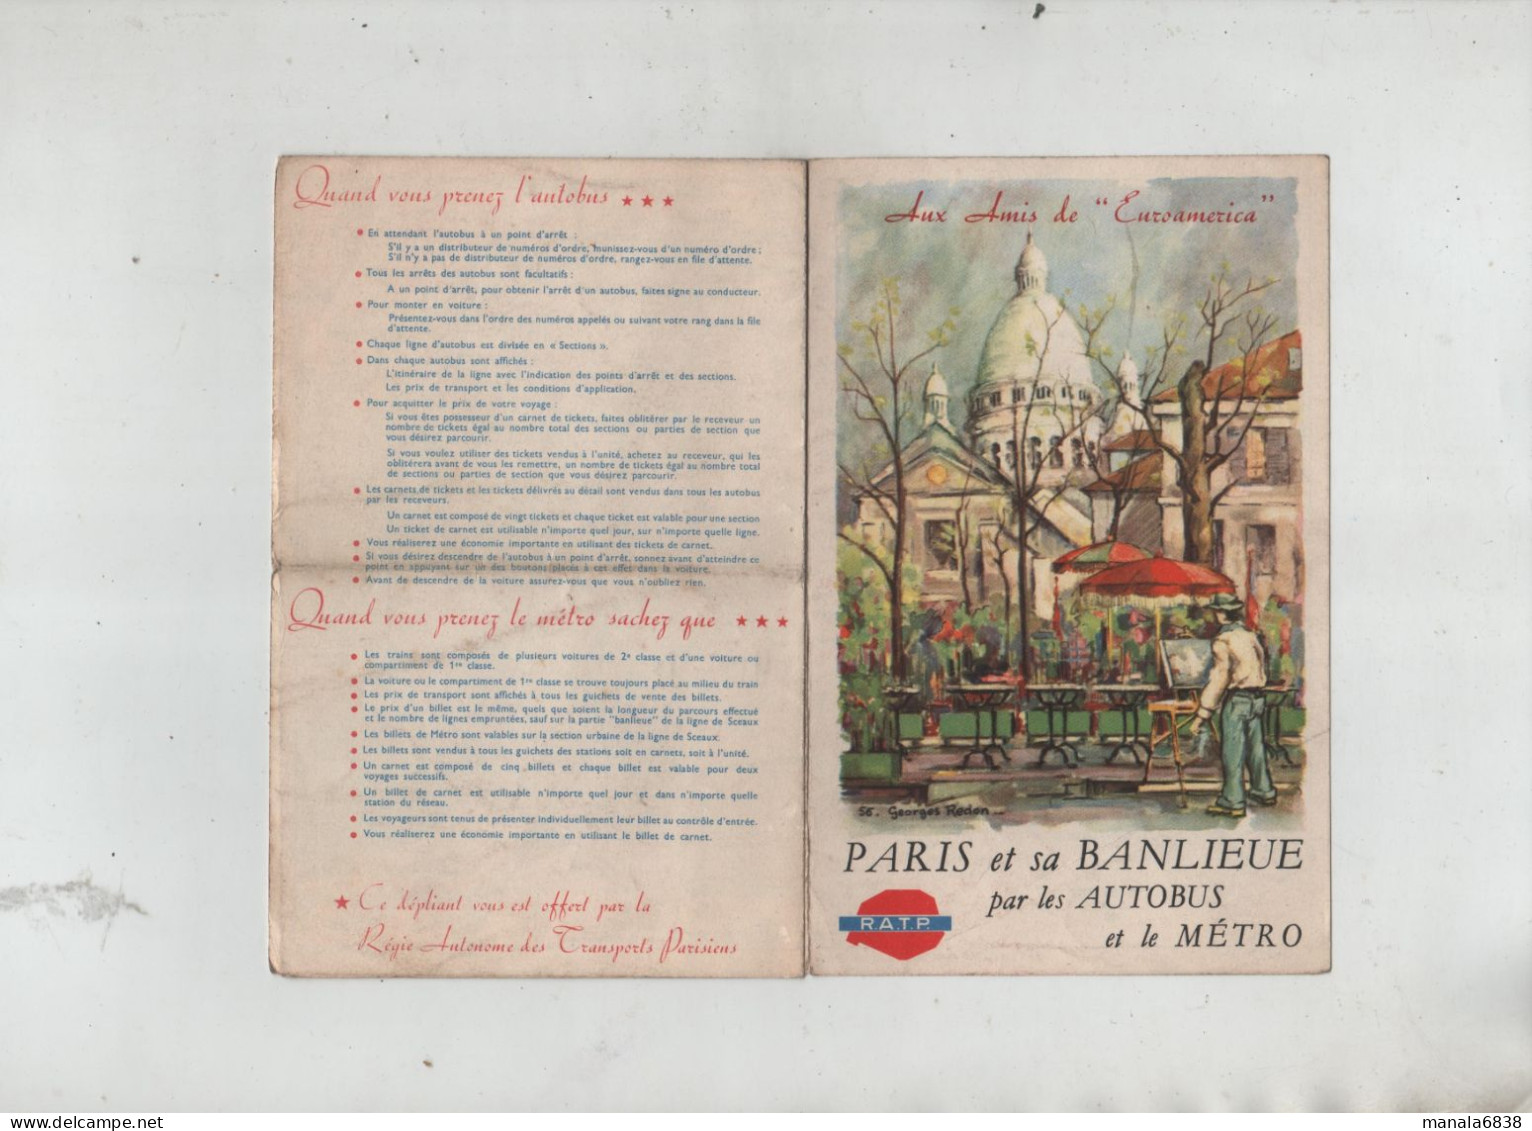 Quand vous prenez l'autobus ★★★
• En attendant l'autobus à un point d'arrêt :
S'il y a un distributeur de numéros d'ordre, munissez-vous d'un numéro d'ordre ;
S'il n'y a pas de distributeur de numéros d'ordre, rangez-vous en file d'attente.
• Tous les arrêts des autobus sont facultatifs :
A un point d'arrêt, pour obtenir l'arrêt d'un autobus, faites signe au conducteur.
• Pour monter en voiture :
Présentez-vous dans l'ordre des numéros appelés ou suivant votre rang dans la file
d'attente.
• Chaque ligne d'autobus est divisée en « Sections ».
• Dans chaque autobus sont affichés :
L'itinéraire de la ligne avec l'indication des points d'arrêt et des sections.
Les prix de transport et les conditions d'application.
• Pour acquitter le prix de votre voyage :
Si vous êtes possesseur d'un carnet de tickets, faites oblitérer par le receveur un
nombre de tickets égal au nombre total des sections ou parties de section que
vous désirez parcourir.
Si vous voulez utiliser des tickets vendus à l'unité, achetez au receveur, qui les
oblitérera avant de vous les remettre, un nombre de tickets égal au nombre total
de sections ou parties de section que vous désirez parcourir.
• Les carnets de tickets et les tickets délivrés au détail sont vendus dans tous les autobus
par les receveurs.
Un carnet est composé de vingt tickets et chaque ticket est valable pour une section
Un ticket de carnet est utilisable n'importe quel jour, sur n'importe quelle ligne.
• Vous réaliserez une économie importante en utilisant des tickets de carnet.
• Si vous désirez descendre de l'autobus à un point d'arrêt, sonnez avant d'atteindre ce
point en appuyant sur un des boutons placés à cet effet dans la voiture.
• Avant de descendre de la voiture assurez-vous que vous n'oubliez rien.
Quand vous prenez le métro sachez que ★★★
• Les trains sont composés de plusieurs voitures de 2e classe et d'une voiture ou
compartiment de 1re classe.
• La voiture ou le compartiment de 1re classe se trouve toujours placé au milieu du train
• Les prix de transport sont affichés à tous les guichets de vente des billets.
• Le prix d'un billet est le même, quels que soient la longueur du parcours effectué
et le nombre de lignes empruntées, sauf sur la partie "banlieue" de la ligne de Sceaux
• Les billets de Métro sont valables sur la section urbaine de la ligne de Sceaux.
• Les billets sont vendus à tous les guichets des stations soit en carnets, soit à l'unité.
• Un carnet est composé de cinq billets et chaque billet est valable pour deux
voyages successifs.
• Un billet de carnet est utilisable n'importe quel jour et dans n'importe quelle
station du réseau.
• Les voyageurs sont tenus de présenter individuellement leur billet au contrôle d'entrée.
• Vous réaliserez une économie importante en utilisant le billet de carnet.
★ Ce dépliant vous est offert par la
Régie Autonome des Transports Parisiens
Aux Amis de "Euroamerica"
56. Georges Redon
PARIS et sa BANLIEUE
par les AUTOBUS
et le MÉTRO
R.A.T.P.
manala6838